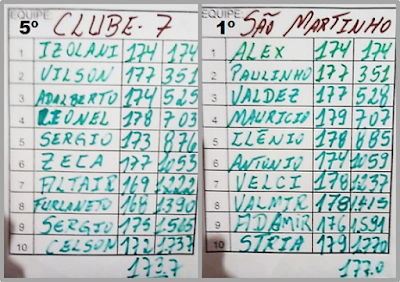 EQUIPE:
5º CLUBE. 7
1 IZOLANI 174 174
2 VILSON 177 351
3 ADALBERTO 174 525
4 LEONEL 178 703
5 SERGIO 173 876
6 ZECA 177 1053
7 ALTAIR 169 1222
8 FURLANETO 168 1390
9 SERGIO 175 1565
10 CELSON 172 1737
173.7
EQUIPE:
1º SÃO MARTINHO
1 ALEX 174 174
2 PAULINHO 177 351
3 VALDEZ 177 528
4 MAURICIO 179 707
5 ILÊNIO 178 885
6 ANTONIO 174 1059
7 VELCI 178 1237
8 VALMIR 178 1415
9 ADAMIR 176 1591
10 STRIA 179 1770
177.0